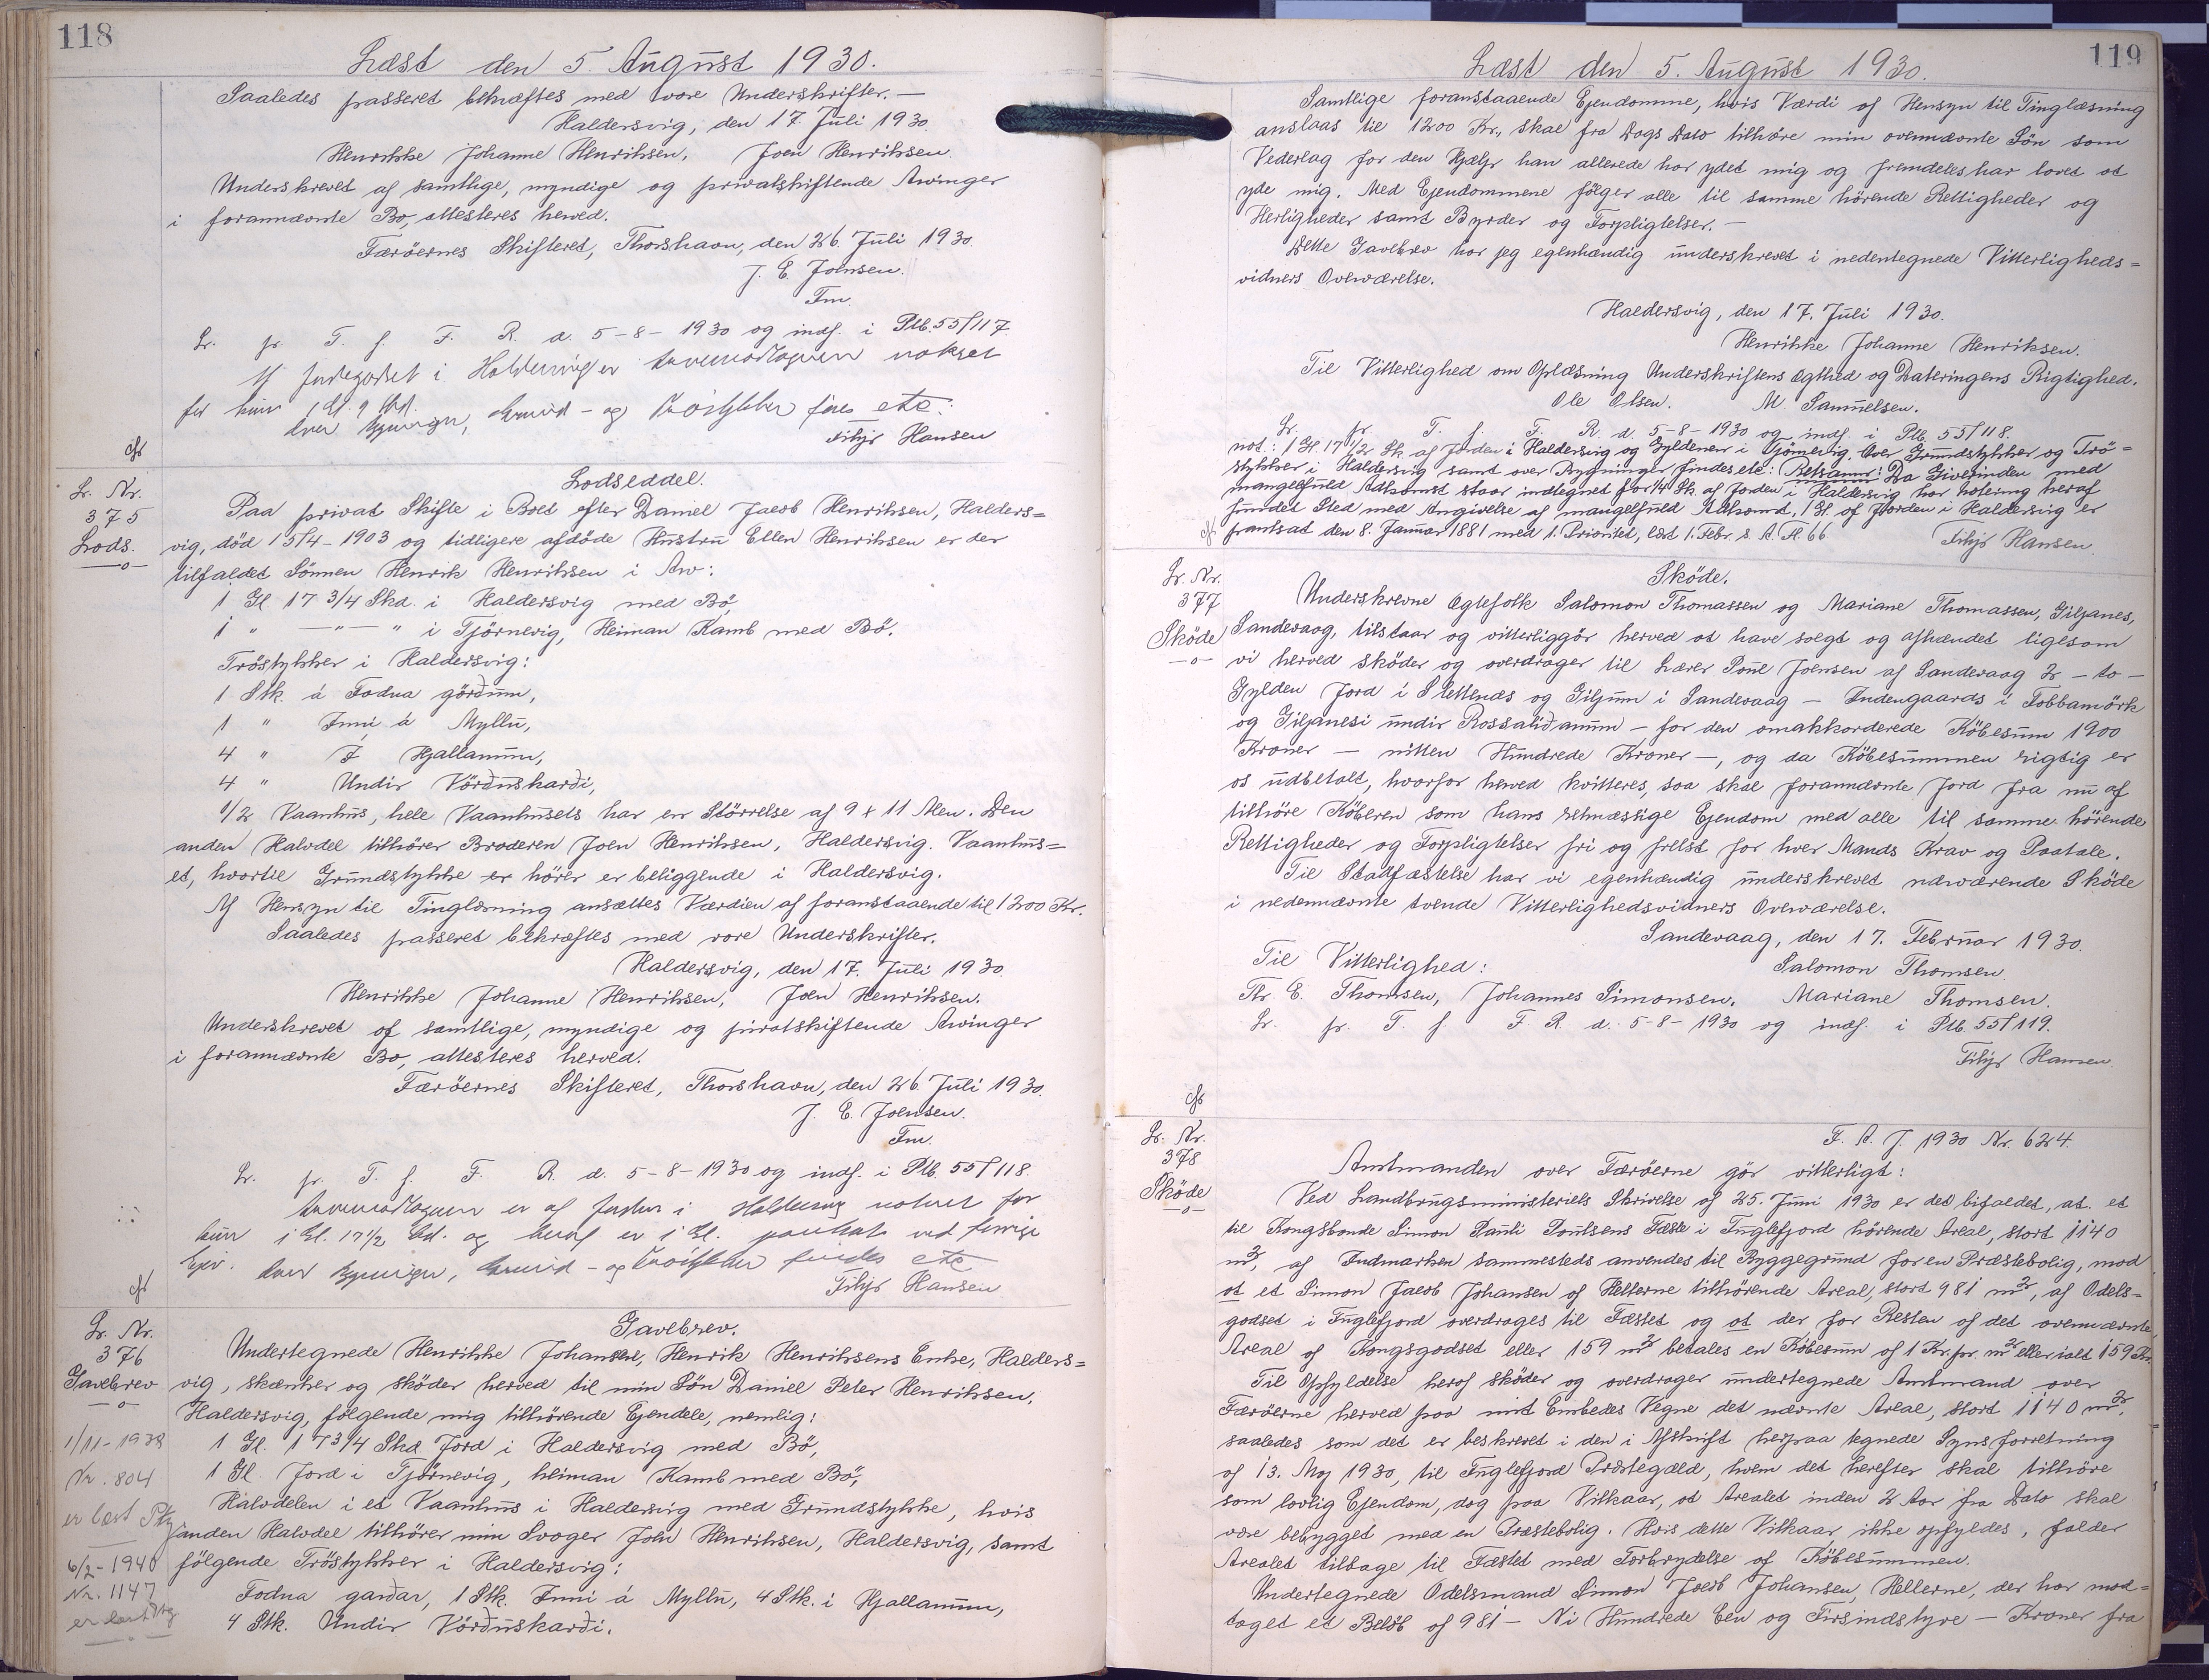 118
Læst den 5. August 1930.
Saaledes passeret bekræftes med vore Underskrifter. —
Haldersvig, den 17. Juli 1930.
Henrikke Johanne Henriksen, Joen Henriksen.
Underskrevet af samtlige, myndige og privatskiftende Arvinger
i forannævnte Bo, attesteres herved.
Færöernes Skifteret, Thorshavn, den 26. Juli 1930.
J. E. Joensen.
Fm.
Lr. pr. T. f. F. R. d. 5-8-1930 og indf. i Ptb. 55/117.
i Haldersvig er
for kun 1 Gl. 9 Skd.
over Bygninger, Grund- og Tröstykker findes etc:
Filip Hansen
Lr. Nr.
375
Lods.
—o—
Lodseddel.
Paa privat Skifte i Boet efter Daniel Jacob Henriksen, Halders=
vig, död 15/4-1903 og tidligere afdöde Hustru Ellen Henriksen er der
tilfaldet Sönnen Henrik Henriksen i Arv:
1 Gl. 17 3/4 Skd. i Haldersvig med Bö,
1 " —"— " i Tjörnevig, Heiman Kamb med Bö.
Tröstykker i Haldersvig:
1 Stk. á Fodna görðum,
1 " Inni á Myllu,
4 " Í Hjallanum,
4 " Undir Vörðuskarði,
1/2 Vaanhus, hele Vaanhusets har en Störrelse af 9 x 11 Alen. Den
anden Halvdel tilhörer Broderen Joen Henriksen, Haldersvig. Vaanhus=
et, hvortil Grundstykke er hörer er beliggende i Haldersvig.
Af Hensyn til Tinglæsning ansættes Værdien af foranstaaende til 1200 Kr.
Saaledes passeret bekræftes med vore Underskrifter.
Haldersvig, den 17. Juli 1930.
Henrikke Johanne Henriksen, Joen Henriksen.
Underskrevet af samtlige, myndige og privatskiftende Arvinger
i forannævnte Bo, attesteres herved.
Færöernes Skifteret, Thorshavn, den 26. Juli 1930.
J. E. Joensen.
Fm.
Lr. pr. T. f. F. R. d. 5-8-1930 og indf. i Ptb. 55/118.
er af Jorden i Haldersvig noteret for
kun 1 Gl. 17 1/2 Skd. og heraf er 1 Gl. pantsat ved
Over Bygninger, Grund- og Tröstykker findes etc
Filip Hansen
Lr. Nr.
376
Gavebrev
—o—
1/11-1938
Nr. 804
er læst
6/2-1940
Nr. 1147
er læst
Gavebrev.
Undertegnede Henrikke Johanne, Henrik Henriksens Enke, Halders=
vig, skænker og sköder herved til min Sön Daniel Peter Henriksen,
Haldersvig, fölgende mig tilhörende Ejendele, nemlig:
1 Gl. 17 3/4 Skd. Jord i Haldersvig med Bö,
1 Gl. Jord i Tjörnevig, heiman Kamb med Bö,
Halvdelen i et Vaanhus i Haldersvig med Grundstykke, hvis
anden Halvdel tilhörer min Svoger Joen Henriksen, Haldersvig, samt
fölgende Tröstykker i Haldersvig:
Fodna garðar, 1 Stk. Inni á Myllu, 4 Stk. i Hjallanum,
4 Stk. Undir Vörðuskarði.
119
Læst den 5. August 1930.
Samtlige foranstaaende Ejendomme, hvis Værdi af Hensyn til Tinglæsning
anslaas til 1200 Kr., skal fra Dags Dato tilhöre min ovennævnte Sön som
Vederlag for den Hjælp han allerede har ydet mig og fremdeles har lovet at
yde mig. Med Ejendommene fölger alle til samme hörende Rettigheder og
Herligheder samt Byrder og Forpligtelser. —
Dette Gavebrev har jeg egenhændig underskrevet i nedentegnede Vitterligheds=
vidners Overværelse.
Haldersvig, den 17. Juli 1930.
Henrikke Johanne Henriksen.
Til Vitterlighed om Oplæsning Underskriftens Ægthed og Dateringens Rigtighed.
Ole Olsen. M. Samuelsen.
Lr. pr. T. f. F. R. d. 5-8-1930 og indf. i Ptb. 55/118.
not.: 1 Gl. 17 1/2 Sk. af Jorden i Haldersvig og Gyldenen i Tjörnevig. Over Grundstykker og Trö=
stykker i Haldersvig samt over Bygninger findes etc: Retsanm: Da Giverinden med
mangelfuld Adkomst staar indtegnet for 1/4 Sk. af Jorden i Haldersvig har notering heraf
fundet Sted med Angivelse af mangelfuld Adkomst, 1 Gl. af Jorden i Haldersvig er
pantsat den 8. Januar 1881 med 1. Prioritet, læst 1. Febr. s. A. Fl. 66
Filip Hansen.
Lr. Nr.
377
Sköde
—o—
Sköde.
Underskrevne Ægtefolk Salomon Thomassen og Mariane Thomassen, Giljanes,
Sandevaag, tilstaar og vitterliggör herved at have solgt og afhændet ligesom
vi herved sköder og overdrager til Lærer Poul Joensen af Sandevaag 2 — to —
Gylden Jord i Slettenæs og Giljum i Sandevaag — Indengaards i Tobbamörk
og Giljanesi undir Rossaliðanum — for den omakkorderede Köbesum 1900
Kroner — nitten Hundrede Kroner —, og da Köbesummen rigtig er
os udbetalt, hvorfor herved kvitteres, saa skal forannævnte Jord fra nu af
tilhöre Köberen som hans retmæssige Ejendom med alle til samme hörende
Rettigheder og Forpligtelser fri og frelst for hver Mands Krav og Paatale.
Til Stadfæstelse har vi egenhændig underskrevet nærværende Sköde
i nedennævnte tvende Vitterlighedsvidners Overværelse.
Sandevaag, den 17. Februar 1930.
Til Vitterlighed: Salomon Thomsen.
Thr. E. Thomsen, Johannes Simonsen. Mariane Thomsen.
Lr. pr. T. f. F. R. d. 5-8-1930 og indf. i Ptb. 55/119.
Filip Hansen
Lr. Nr.
378
Sköde
—o—
F. A. J. 1930 Nr. 624.
Amtmanden over Færöerne gör vitterligt:
Ved Landbrugsministeriets Skrivelse af 25. Juni 1930 er det bifaldet, at et
til Kongsbonde Simon Pauli Poulsens Fæste i Fuglefjord hörende Areal, stort 1140
m², af Indmarken sammesteds anvendes til Byggegrund for en Præstebolig, mod
at et Simon Jacob Johansen af Hellerne tilhörende Areal, stort 981 m², af Odels-
godset i Fuglefjord overdrages til Fæstet og at der for Resten af det ovennævnte
Areal af Kongsgodset eller 159 m² betales en Köbesum af 1 Kr. pr. m² eller ialt 159 Kr.
Til Opfyldelse heraf sköder og overdrager undertegnede Amtmand over
Færöerne herved paa mit Embedes Vegne det nævnte Areal, stort 1140 m²,
saaledes som det er beskrevet i den i Afskrift herpaa tegnede Synsforretning
af 13. Maj 1930, til Fuglefjord Præstegæld, hvem det herefter skal tilhöre
som lovlig Ejendom, dog paa Vilkaar, at Arealet inden 2 Aar fra Dato skal
være bebygget med en Præstebolig. Hvis dette Vilkaar ikke opfyldes, falder
Arealet tilbage til Fæstet med Fortrydelse af Köbesummen.
Undertegnede Odelsmand Simon Jacob Johansen, Hellerne, der har mod=
taget et Belöb af 981 — Ni Hundrede Een og Firsindstyve — Kroner fra